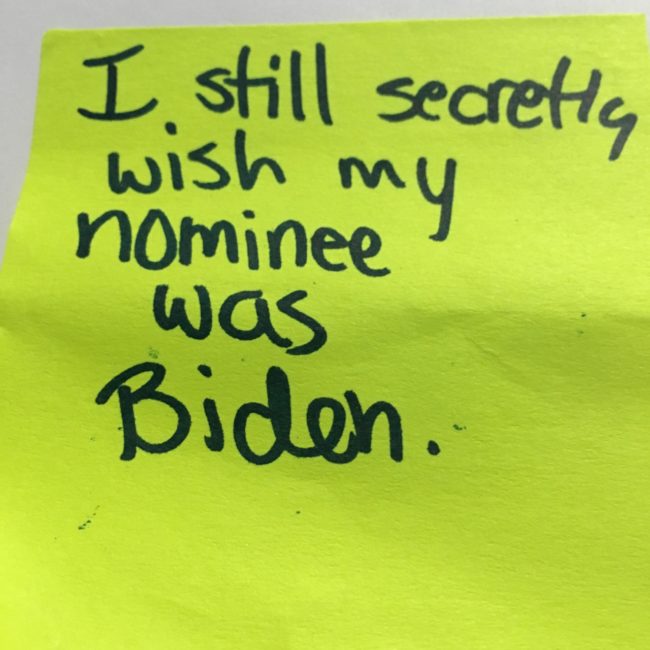 I still secretly
wish my
nominee
was
Biden.